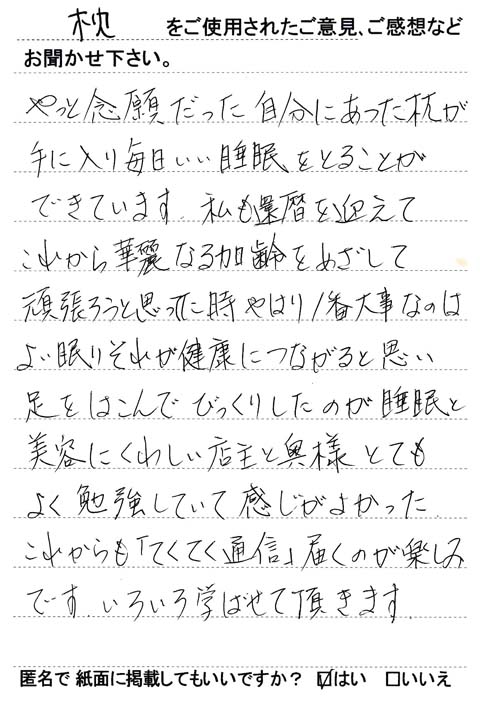 枕 をご使用されたご意見、ご感想など
お聞かせ下さい。
やっと念願だった自分にあった枕が
手に入り毎日いい睡眠をとることが
できています。私も還暦を迎えて
これから華麗なる加齢をめざして
頑張ろうと思った時やはり1番大事なのは
よい眠りそれが健康につながると思い
足をはこんでびっくりしたのが睡眠と
美容にくわしい店主と奥様とても
よく勉強していて感じがよかった
これからも「てくてく通信」届くのが楽しみ
です。いろいろ学ばせて頂きます。
匿名で紙面に掲載してもいいですか？ ☑はい □いいえ